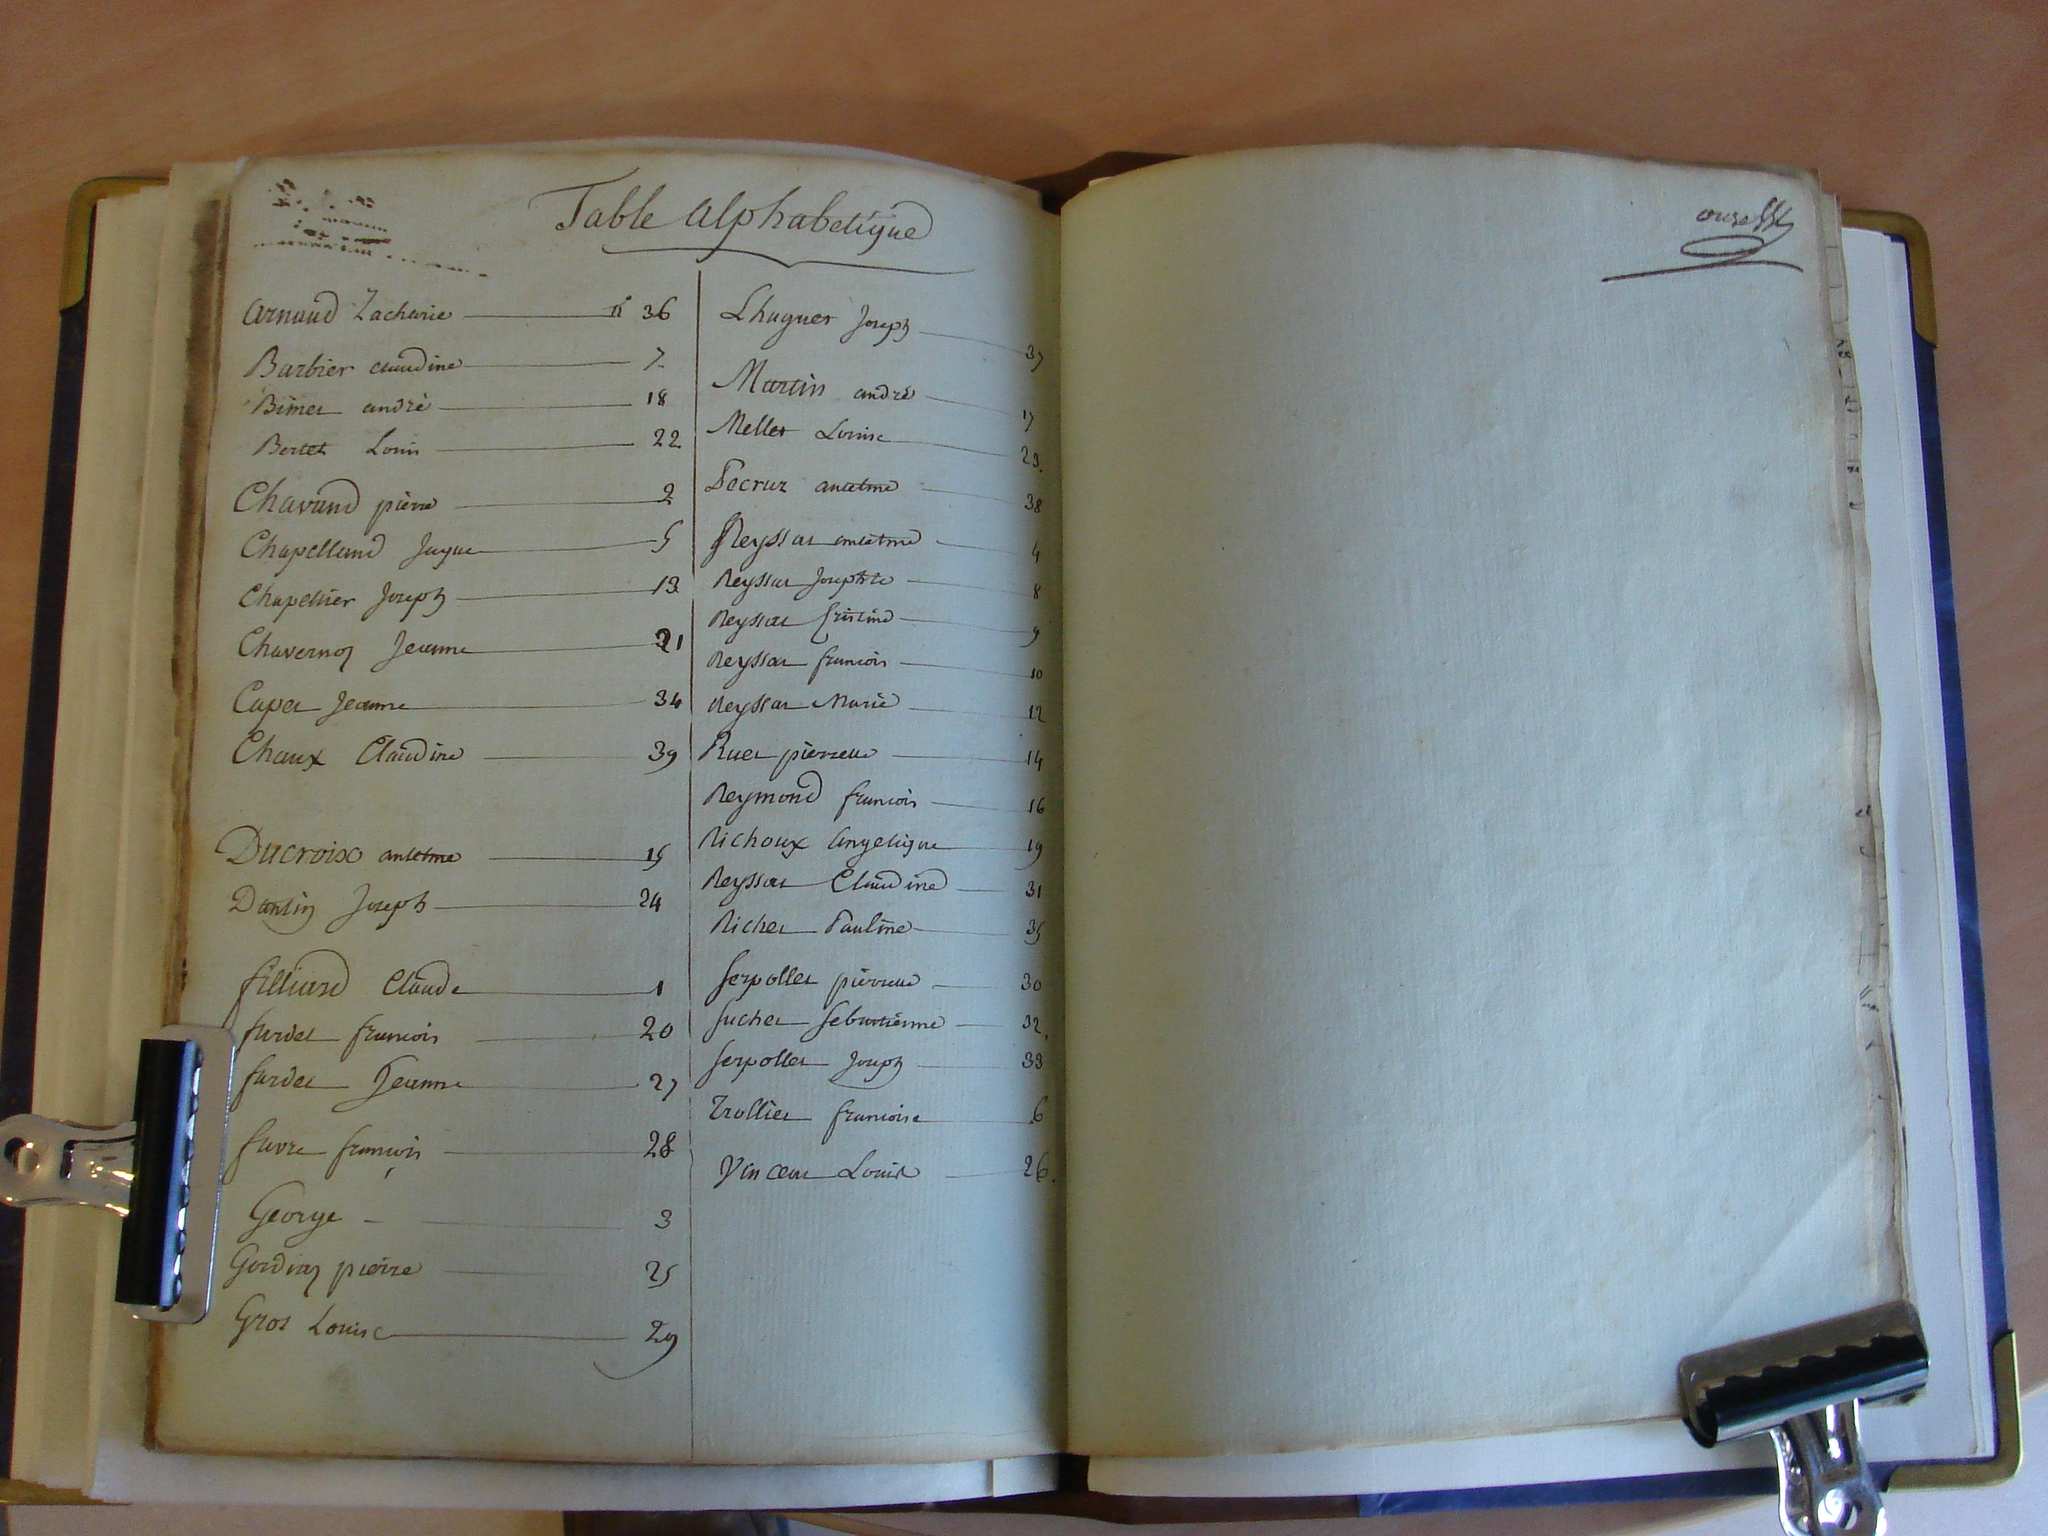 Table alphabetique
Arnaud Zacharie n° 36
Barbier claudine 7
Bimet andré 18
Bertet Louis 22
Chavand pierre 2
Chapelland Jaque 5
Chapellier Joseph 13
Chavernoz Jeanne 21
Capet Jeanne 34
Chaux Claudine 39
Ducroix antelme 15
Dantin Joseph 24
filliard Claude 1
fardet francois 20
fardet Jeanne 27
favre francois 28
George 3
Gordin pierre 25
Gros Louise 29
Lhuguer Joseph 37
Martin andré 17
Mellet Louise 23.
Pecruz antelme 38
Reyssat antelme 4
Reyssat Josephte 8
Reyssat 9
Reyssat francois 10
Reyssat Marie 12
Ruet pierrette 14
Reymond francois 16
Richoux Angelique 19
Reyssat Claudine 31
Richet Pauline 35
Serpollet pierrette 30
Suchet Sebastienne 32.
Serpollet Joseph 33
Trollier francoise 6
Vincent Louise 26.